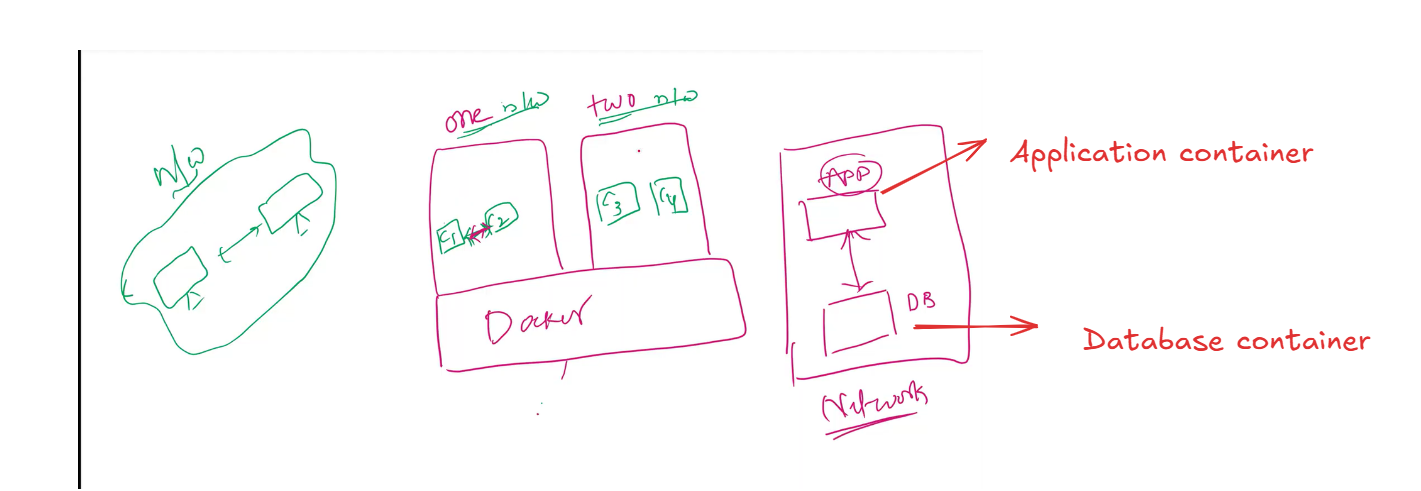 N/W
one n/w
two n/w
C1
C2
C3
C4
Docker
APP
DB
Network
Application container
Database container